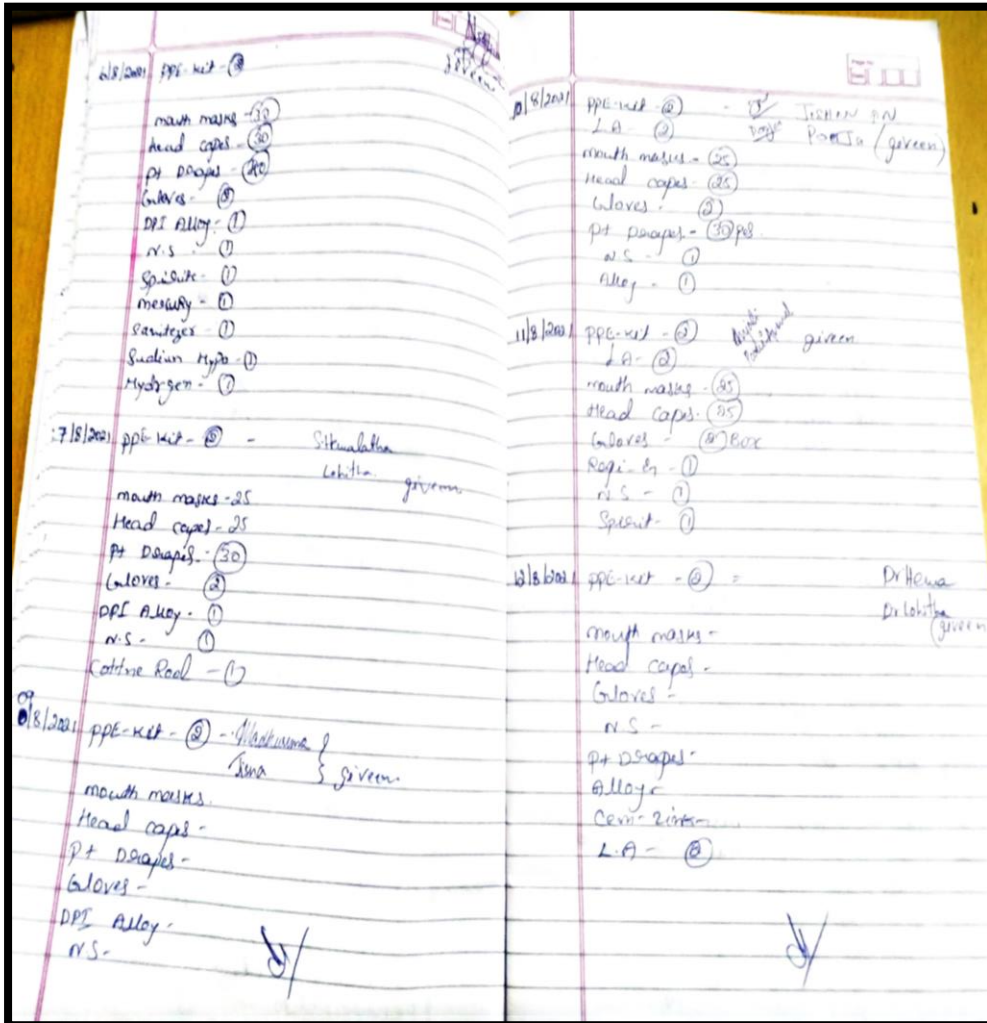 6/8/2021 PPE-Kit - ②
given
mouth masks - 30
Head capes - 30
Pt Drapes -
Gloves -
DPI Alloy - ①
N.S - ①
Spirite - ①
mercury - ①
Sanitezer - ①
Sudium Hypo - ①
Hydrgen - ①
7/8/2021 PPE-Kit - ② -
Lohitha
giveen
mouth masks - 25
Head capes - 25
Pt Drapes - 30
Gloves - ②
DPI Alloy - ①
N.S - ①
Cottne Rool - ①
09/8/2021 PPE-Kit - ② -
Jisna } giveen
mouth masks.
Head capes -
Pt Drapes -
Gloves -
DPI Alloy -
N.S -
10/8/2021 PPE-Kit - ② -
L A - ② Pooja (giveen)
mouth masks - 25
Head capes - 25
Gloves - ②
Pt Drapes - 30 pes.
N S - ①
Alloy - ①
11/8/2021 PPE-Kit - ② giveen
LA - ②
mouth masks - 25
Head capes - 25
Gloves - ② Box
- ①
N S - ①
Spirit - ①
12/8/2021 PPE-Kit - ② = Dr Hema
Dr Lohitha
(giveen
mouth masks -
Head capes -
Gloves -
N.S -
Pt Drapes -
Alloy -
Cem-
L.A - ②